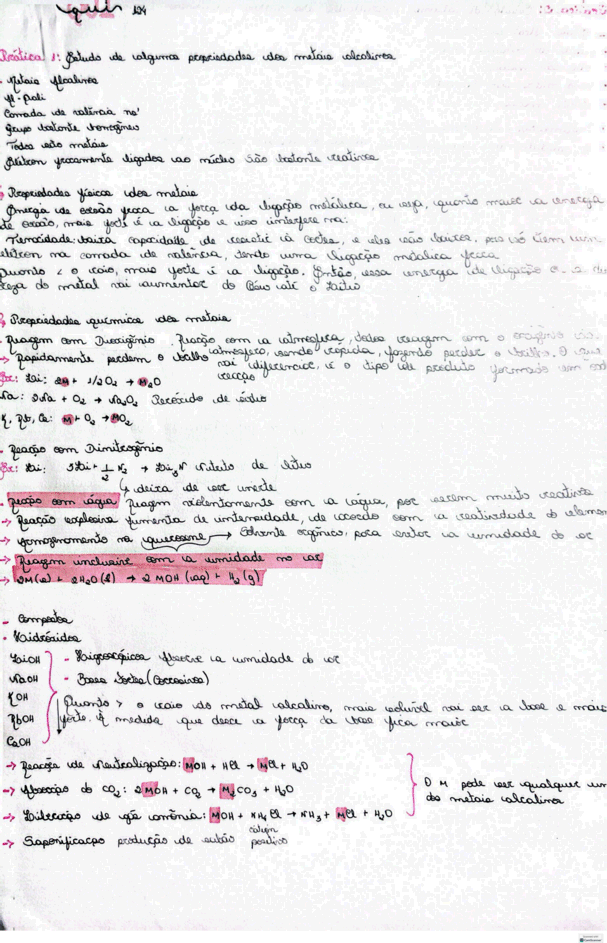 Quin 124
Prática 1: Estudo de alguma propriedades dos metais alcalinos
- Metais Alcalinos
Camada de valência ns¹
Grupo bastante homogêneo
Todos são metais
Elétron fracamente ligados ao núcleo são bastante reativos
Propriedades físicas dos metais
Energia de coesão fraca a força da ligação metálica, ou seja, quanto maior a energia
de coesão, mais forte é a ligação e isso interfere na:
baixa capacidade de resistir à cortes, e eles são só tem um
elétron na camada de valência, tendo uma ligação metálica fraca
Quanto < o raio, mais forte é a ligação. Então, essa energia de ligação e a du
reza do metal vai aumentar do Césio até o Lítio
Propriedades químicas dos metais
- Reagem com Dioxigênio. Reação com a atmosfera, todos reagem com o oxigênio da
→ Rapidamente perdem o brilho atmosfera, sendo rápida, fazendo perder o brilho. O que
vai diferenciar, é o tipo de produto formado em cada
reação
Ex: Li: 2M + 1/2 O₂ → M₂O
Na: 2Na + O₂ → Na₂O₂ Peróxido de sódio
K, Rb, Cs: M + O₂ → MO₂
- Reação com Dinitrogênio
Ex: Li: 3Li + 1/2 N₂ → Li₃N Nitreto de lítio
↳ deixa de ser inerte
Reação com água Reagem violentamente com a água, por serem muito reativos
→ Reação explosiva aumenta de intensidade, de acordo com a reatividade do elemen
→ Armazenamento na querosene → Solvente orgânico, para evitar a umidade do ar
→ Reagem inclusive com a umidade no ar
→ 2M(s) + 2H₂O(l) → 2 MOH (aq) + H₂(g)
- Compostos
- Hidróxidos
LiOH - Higroscópicos Absorve a umidade do ar
NaOH - Bases Fortes (Corrosivas)
KOH Quanto > o raio do metal alcalino, mais solúvel vai ser a base e mais
RbOH forte. À medida que desce a força da base fica maior
CsOH
→ Reação de Neutralização: MOH + HCl → MCl + H₂O
→ Absorção do CO₂: 2MOH + CO₂ → M₂CO₃ + H₂O
O M pode ser qualquer um
dos metais alcalinos
→ Liberação de gás amônia: MOH + NH₄Cl → NH₃ + MCl + H₂O
→ Saponificaçao produção de sabão